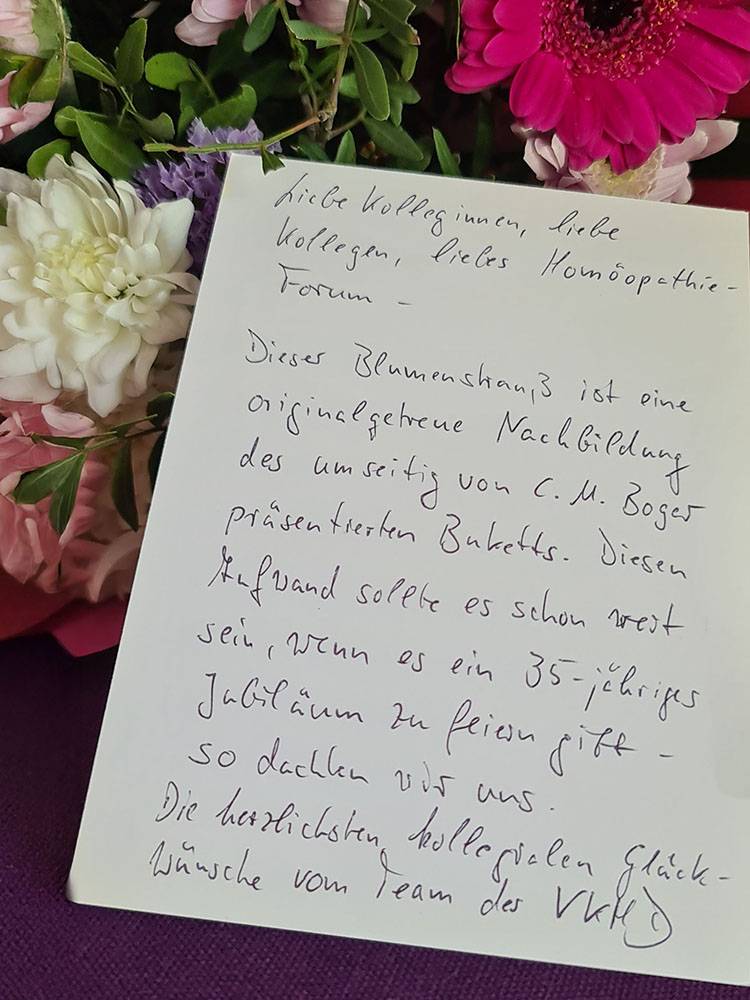 Liebe Kolleginnen, liebe
Kollegen, liebes Homöopathie-
Forum –
Dieser Blumenstrauß ist eine
originalgetreue Nachbildung
des umseitig von C. M. Boger
präsentierten Buketts. Diesen
Aufwand sollte es schon wert
sein, wenn es ein 35-jähriges
Jubiläum zu feiern gibt –
so dachten wir uns.
Die herzlichsten, kollegialen Glück-
wünsche vom Team des VKHD